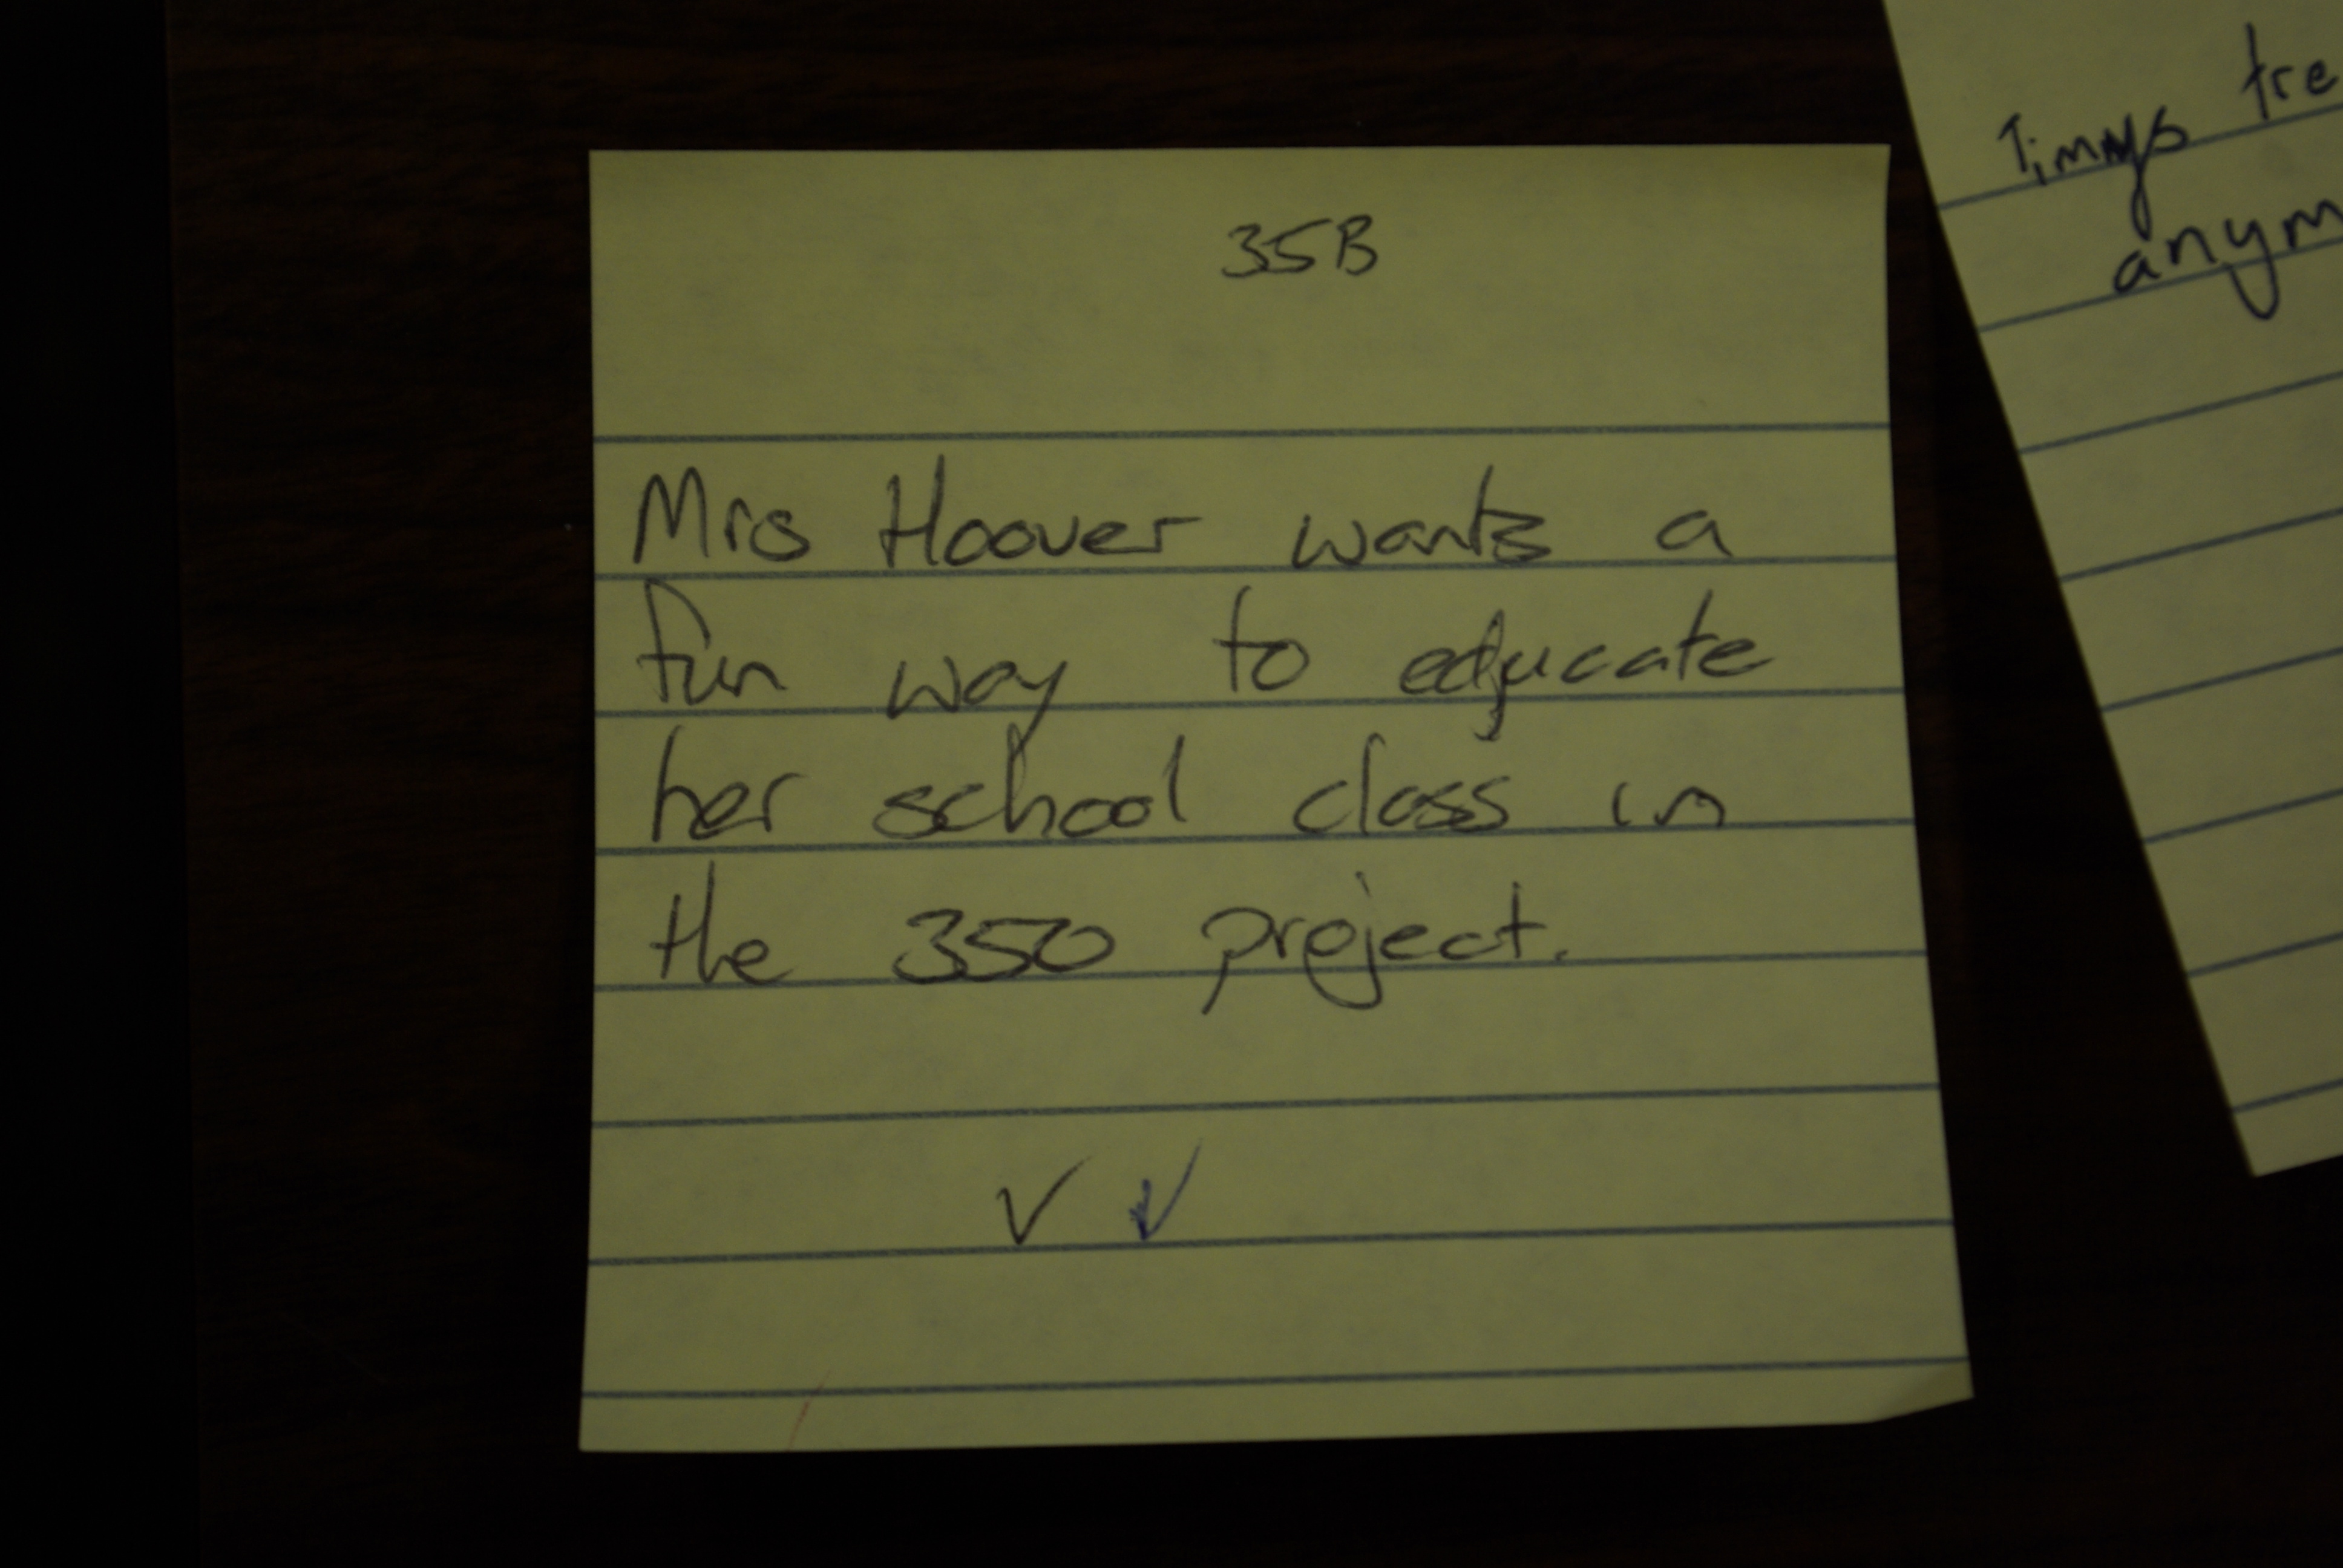 35B
Mrs Hoover wants a
fun way to educate
her school class in
the 350 project.
✓ ✓
Timys tre
anym